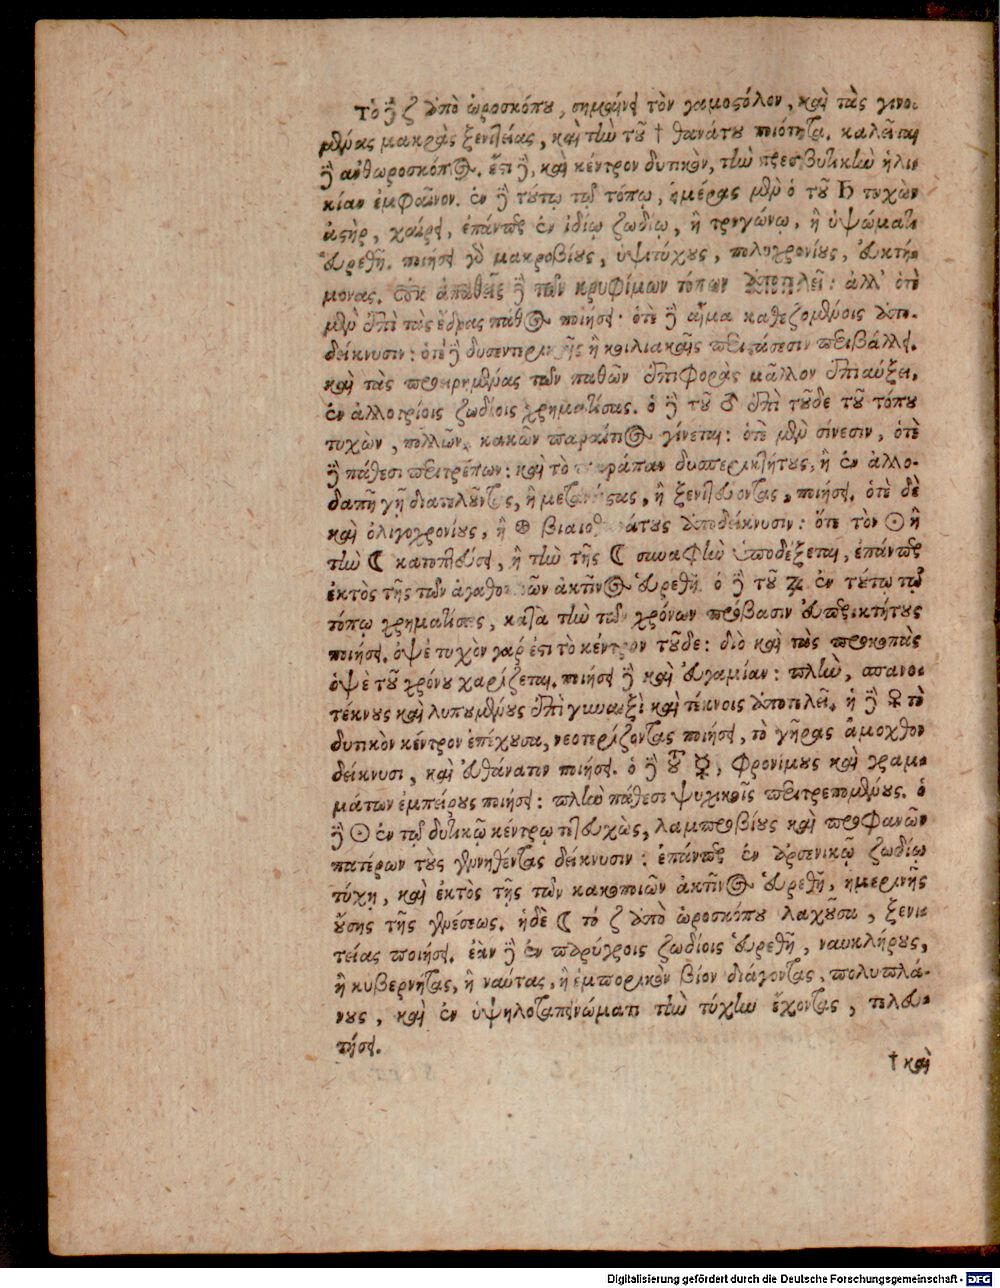 Τὸ δὲ ζ ἀπὸ ὡροσκόπου, σημαίνει τὸν γαμοστόλον, καὶ τὰς γινο-
μένας μακρὰς ξενιτείας, καὶ τὴν τοῦ † θανάτου ποιότητα. καλεῖται
δὲ ἀνθωροσκόπος. ἔστι δὲ, καὶ κέντρον δυτικὸν, τὴν πρεσβυτικὴν ἡλι-
κίαν ἐμφαῖνον. ἐν δὲ τούτῳ τῷ τόπῳ, ἡμέρας μὲν ὁ τοῦ ♄ τυχὼν
ἀστὴρ, χαίρει, ἐπάντως ἐν ἰδίῳ ζωδίῳ, ἢ τριγώνῳ, ἢ ὑψώματι
εὑρεθῇ. ποιήσει γὰρ μακροβίους, ὑψιτύχους, πολυχρονίους, εὐκτή-
μονας. οὐκ ἀπαθεῖς δὲ τῶν κρυφίμων τόπων ἀποτελεῖ: ἀλλ' ὁτὲ
μὲν ἐπὶ τὰς ἕδρας πάθος ποιήσει· ὁτὲ δὲ αἷμα καθεζομένοις ἀπο-
δείκνυσιν: ὁτὲ δὲ δυσεντερικαῖς ἢ κοιλιακαῖς περιστάσεσιν περιβάλλει.
καὶ τὰς προειρημένας τῶν παθῶν ἐπιφορὰς μᾶλλον ἐπιαύξει,
ἐν ἀλλοτρίοις ζωδίοις χρηματίσας. ὁ δὲ τοῦ ♂ ἐπὶ τοῦδε τοῦ τόπου
τυχὼν, πολλῶν κακῶν παραίτιος γίνεται: ὁτὲ μὲν σίνεσιν, ὁτὲ
δὲ πάθεσι περιτρέπων: καὶ τὸ δυσπερικτήτους, ἢ ἐν ἀλλο-
δαπῇ γῇ διατελοῦντας, ἢ ἢ ξενιτεύοντας, ποιήσει. ὁτὲ δὲ
καὶ ὀλιγοχρονίους, ἢ ⊕ βιαιοθανάτους ἀποδείκνυσιν: ὅτε τὸν ☉ ἢ
τὴν ☾ κατοπτεύσει, ἢ τὴν τῆς ☾ συναφὴν ὑποδέξεται, ἐπάντως
ἐκτὸς τῆς τῶν ἀγαθοποιῶν ἀκτῖνος εὑρεθῇ. ὁ δὲ τοῦ ♃ ἐν τούτῳ τῷ
τόπῳ χρηματίσας, κατὰ τὴν τῶν χρόνων πρόβασιν εὐπερικτήτους
ποιήσει. ὀψὲ τυχὸν γάρ ἐστι τὸ κέντρον τοῦδε: διὸ καὶ τὰς προκοπὰς
ὀψὲ τοῦ χρόνου χαρίζεται. ποιήσει δὲ καὶ εὐγαμίαν: πλὴν, σπανο-
τέκνους καὶ λυπουμένους ἐπὶ γυναιξὶ καὶ τέκνοις ἀποτελεῖ. ἡ δὲ ♀ τὸ
δυτικὸν κέντρον ἐπέχουσα, νεοτερίζοντας ποιήσει, τὸ γῆρας ἄμοχθον
δείκνυσι, καὶ εὐθάνατον ποιήσει. ὁ δὲ τοῦ ☿, φρονίμους καὶ γραμ-
μάτων ἐμπείρους ποιήσει: πλὴν πάθεσι ψυχικοῖς περιτρεπομένους. ὁ
δὲ ☉ ἐν τῷ δυτικῷ κέντρῳ τετευχὼς, λαμπροβίους καὶ προφανῶν
πατέρων τοὺς γεννηθέντας δείκνυσιν: ἐπάντως ἐν ἀρσενικῷ ζωδίῳ
τύχῃ, καὶ ἐκτὸς τῆς τῶν κακοποιῶν ἀκτῖνος εὑρεθῇ, ἡμερινῆς
οὔσης τῆς γενέσεως. ἡδὲ ☾ τό ζ ἀπὸ ὡροσκόπου λαχοῦσα, ξενι-
τείας ποιήσει. ἐὰν δὲ ἐν παρύγροις ζωδίοις εὑρεθῇ, ναυκλήρους,
ἢ κυβερνήτας, ἢ ναύτας, ἢ ἐμπορικὸν βίον διάγοντας, πολυπλά-
νους, καὶ ἐν ὑψηλοταπεινώματι τὴν τύχην ἔχοντας, τελευ-
τήσει.
† καὶ
Digitalisierung gefördert durch die Deutsche Forschungsgemeinschaft - DFG